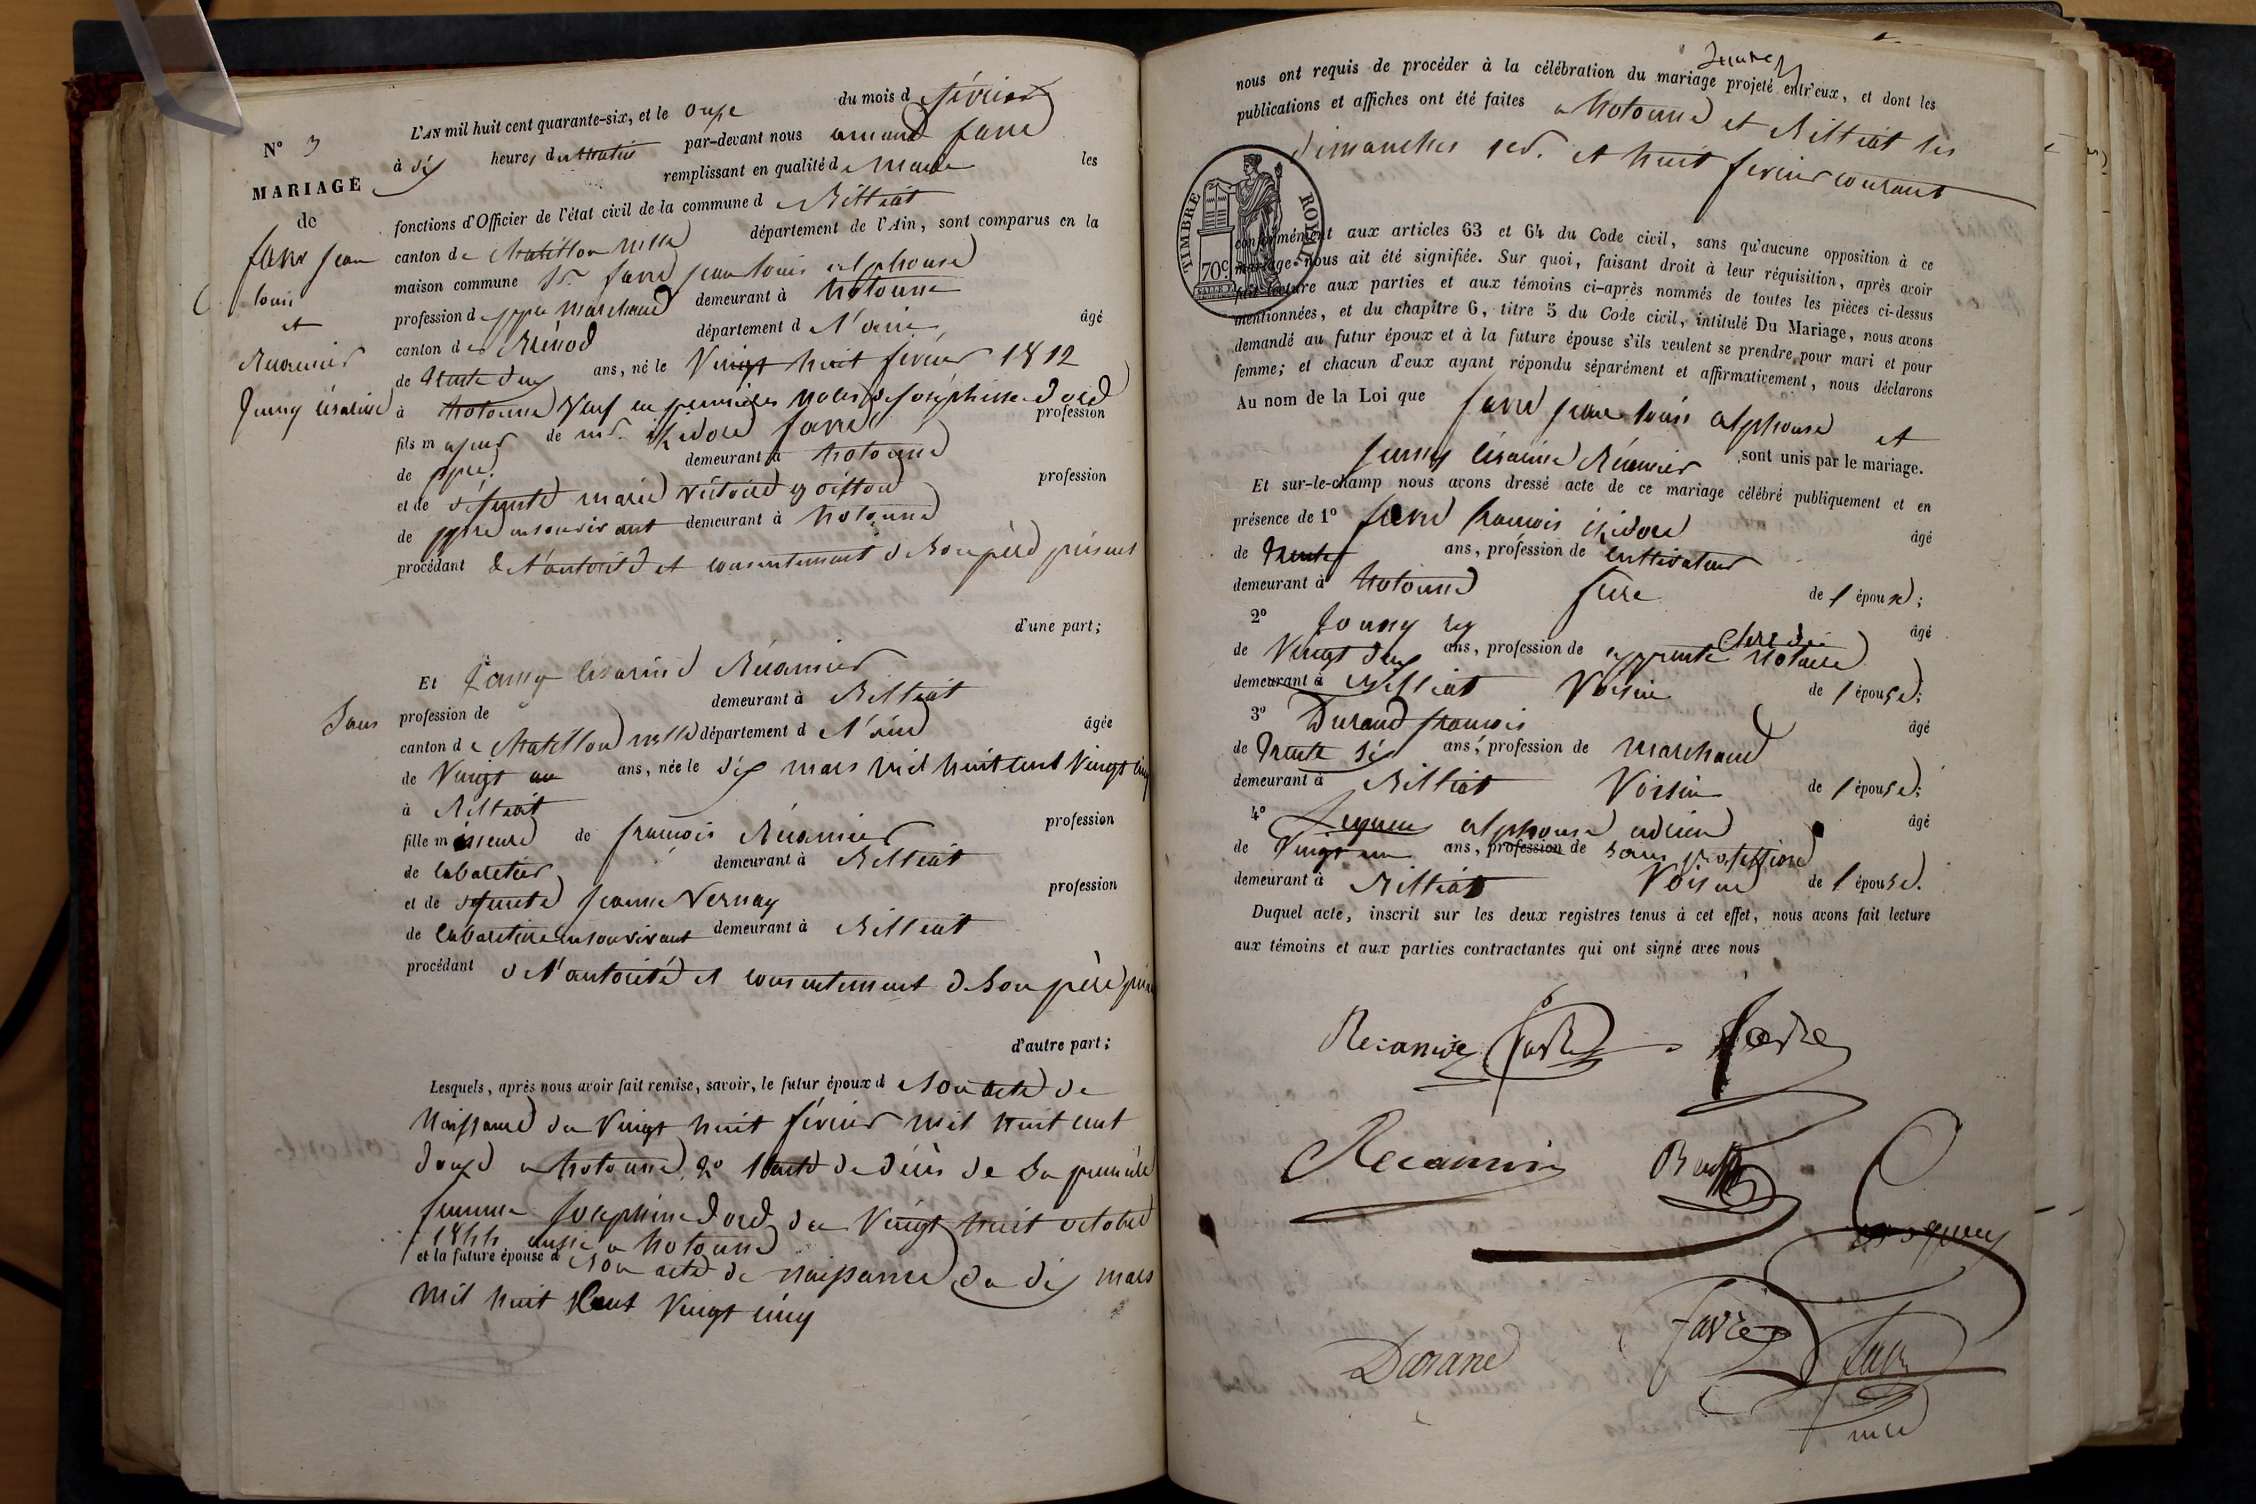 N° 3
MARIAGE
de
favre jean
louis
et
Récamier
Jenny Césarine
L'AN mil huit cent quarante-six, et le onze du mois de février
à dix heures du matin par-devant nous amand favre
remplissant en qualité de Maire les
fonctions d'Officier de l'état civil de la commune de Billiat
canton de Chatillon département de l'Ain, sont comparus en la
maison commune Sr. favre jean louis alphonse
profession de ppre marchand demeurant à hotonne
canton de Brénod département de l'ain, âgé
de trente deux ans, né le Vingt huit février 1812
à hotonne Veuf en premières noces de joséphine dord
fils majeur de mr. isidore favre profession
de ppre. demeurant à hotonne
et de défunte marie victoire profession
de ppre en son vivant demeurant à hotonne
procédant de l'autorité et consentement de Son père présent
d'une part;
Et Jenny Césarine Récamier
Sans profession de demeurant à Billiat
canton de Chatillon département de l'ain âgée
de Vingt un ans, née le dix mars mil huit cent Vingt cinq
à Billiat
fille mineure de françois Récamier profession
de cabaretier demeurant à Billiat
et de défunte jeanne Vernay profession
de cabaretière en son vivant demeurant à Billiat
procédant de l'autorité et consentement de Son père
d'autre part;
Lesquels, après nous avoir fait remise, savoir, le futur époux de Son acte de
Naissance du Vingt huit février mil huit cent
douze a hotonne, 2° l'acte de décès de Sa première
femme joséphine dord du Vingt huit octobre
1844 aussi a hotonne
et la future épouse de Son acte de naissance du dix mars
mil huit cent Vingt cinq
nous ont requis de procéder à la célébration du mariage projeté entr'eux, et dont les
publications et affiches ont été faites a hotonne et Billiat les
dimanches 1er. et huit fevrier courant
TIMBRE ROYAL
70c.
conformément aux articles 63 et 64 du Code civil, sans qu'aucune opposition à ce
mariage nous ait été signifiée. Sur quoi, faisant droit à leur réquisition, après avoir
fait lecture aux parties et aux témoins ci-après nommés de toutes les pièces ci-dessus
mentionnées, et du chapitre 6, titre 5 du Code civil, intitulé Du Mariage, nous avons
demandé au futur époux et à la future épouse s'ils veulent se prendre pour mari et pour
femme; et chacun d'eux ayant répondu séparément et affirmativement, nous déclarons
Au nom de la Loi que favre jean louis alphonse et
jenny Césarine Récamier sont unis par le mariage.
Et sur-le-champ nous avons dressé acte de ce mariage célébré publiquement et en
présence de 1° favre françois isidore âgé
de trente ans, profession de cultivateur
demeurant à hotonne frere de l'époux;
2° Jouny âgé
de Vingt deux ans, profession de Clerc de Notaire
demeurant à Billiat Voisin de l'épouse;
3° Durand françois âgé
de trente six ans, profession de marchand
demeurant à Billiat Voisin de l'épouse;
4° alphonse adrien âgé
de Vingt un ans, profession de Sans profession
demeurant à Billiat Voisin de l'épouse.
Duquel acte, inscrit sur les deux registres tenus à cet effet, nous avons fait lecture
aux témoins et aux parties contractantes qui ont signé avec nous
Recamier favre favre
Recamier
Durand favre favre
mire